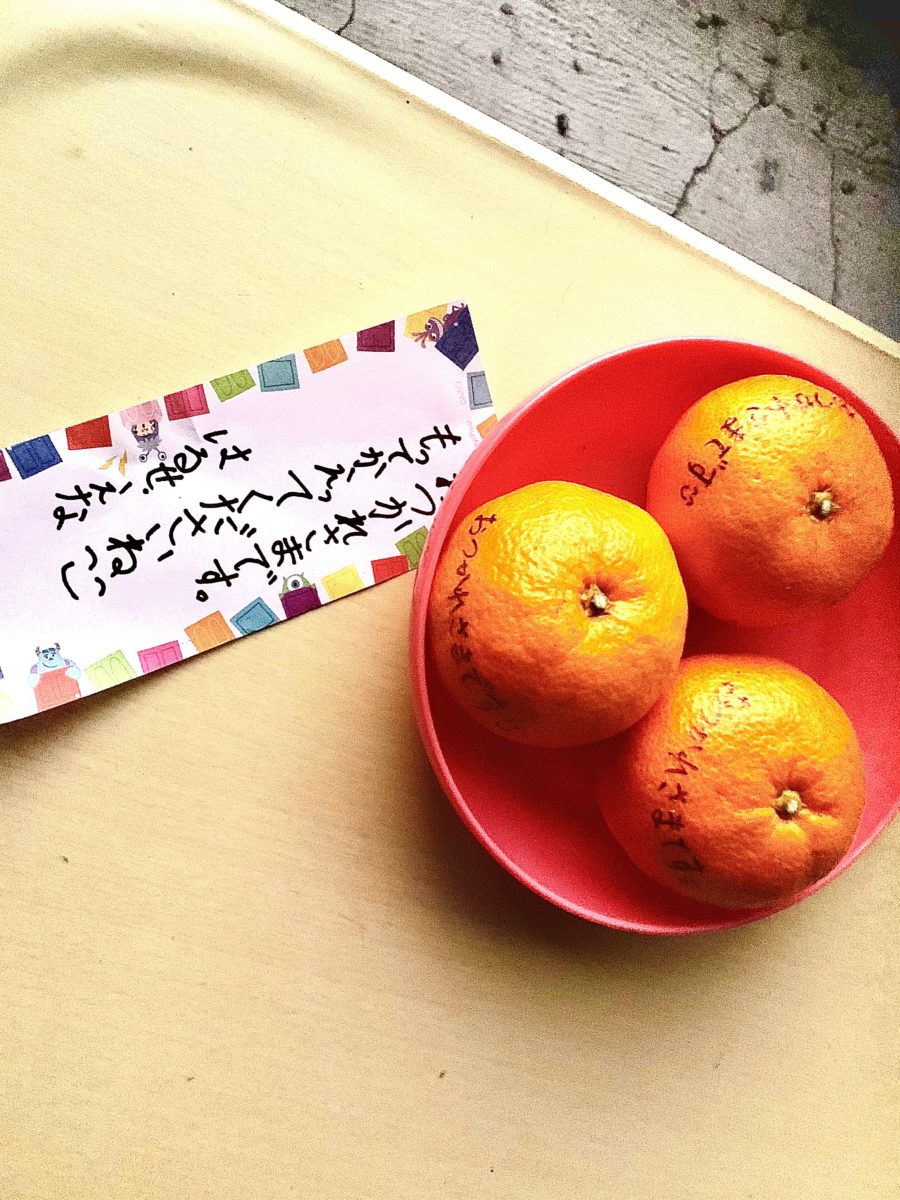 おつかれさまです。
もってかえってくださいね
はるせ、えな
おつかれさまです
おつかれさまです
おつかれさまです